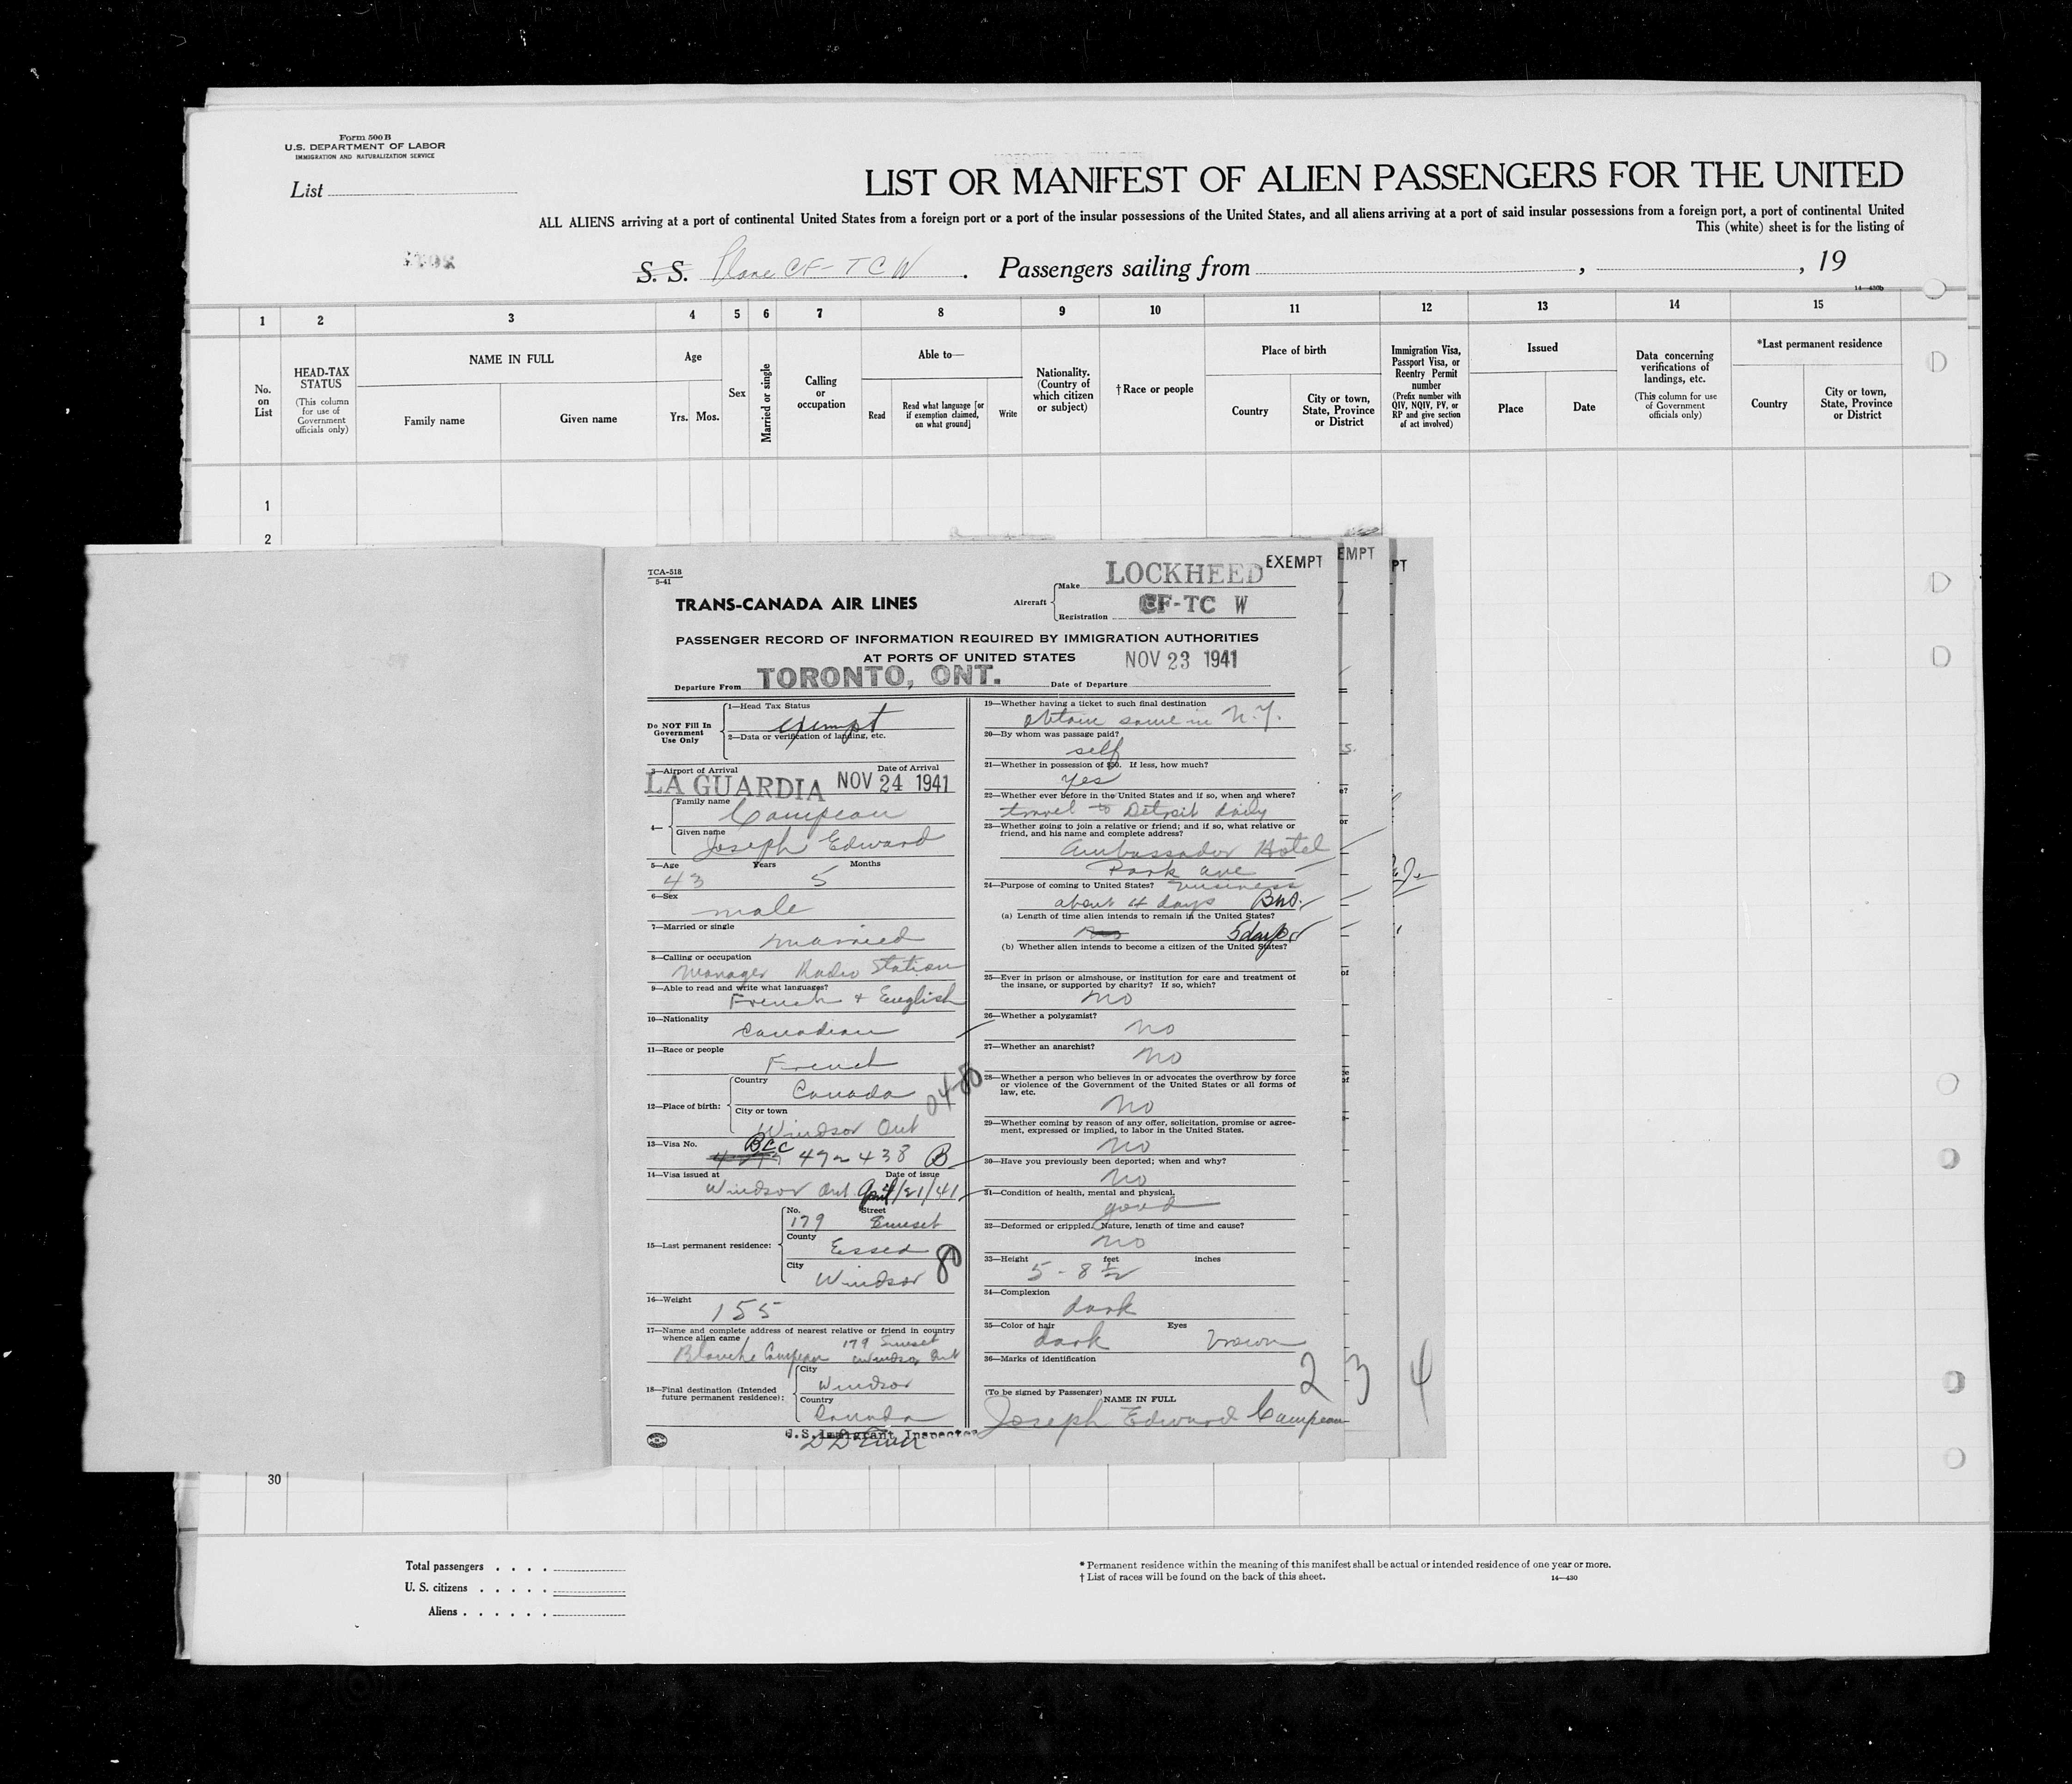 Form 500 B
U.S. DEPARTMENT OF LABOR
IMMIGRATION AND NATURALIZATION SERVICE
List
LIST OR MANIFEST OF ALIEN PASSENGERS FOR THE UNITED
ALL ALIENS arriving at a port of continental United States from a foreign port or a port of the insular possessions of the United States, and all aliens arriving at a port of said insular possessions from a foreign port, a port of continental United
This (white) sheet is for the listing of
S. S. Plane CF-TCW . Passengers sailing from , , 19
14—430b
1 2 3 4 5 6 7 8 9 10 11 12 13 14 15
No. on List
HEAD-TAX STATUS
(This column for use of Government officials only)
NAME IN FULL
Family name Given name
Age
Yrs. Mos.
Sex
Married or single
Calling or occupation
Able to—
Read
Read what language [or if exemption claimed, on what ground]
Write
Nationality. (Country of which citizen or subject)
† Race or people
Place of birth
Country
City or town, State, Province or District
Immigration Visa, Passport Visa, or Reentry Permit number
(Prefix number with QIV, NQIV, PV, or RP and give section of act involved)
Issued
Place Date
Data concerning verifications of landings, etc.
(This column for use of Government officials only)
*Last permanent residence
Country
City or town, State, Province or District
1
2
TCA-518
5-41
TRANS-CANADA AIR LINES
Aircraft
Make LOCKHEED
Registration CF-TC W
EXEMPT
EMPT
PT
PASSENGER RECORD OF INFORMATION REQUIRED BY IMMIGRATION AUTHORITIES
AT PORTS OF UNITED STATES
NOV 23 1941
Departure From TORONTO, ONT. Date of Departure
Do NOT Fill In Government Use Only
1—Head Tax Status
exempt
2—Data or verification of landing, etc.
3—Airport of Arrival Date of Arrival
LA GUARDIA NOV 24 1941
4—
Family name
Campeau
Given name
Joseph Edward
5—Age Years Months
43 5
6—Sex
male
7—Married or single
married
8—Calling or occupation
Manager Radio Station
9—Able to read and write what languages?
French + English
10—Nationality
Canadian
11—Race or people
French
12—Place of birth:
Country
Canada
City or town
Windsor Ont
04-80
13—Visa No.
BCC
472438 B
14—Visa issued at Date of issue
Windsor Ont April /21/41
15—Last permanent residence:
No. Street
179 Sunset
County
Essex
City
Windsor
80
16—Weight
155
17—Name and complete address of nearest relative or friend in country whence alien came
179 Sunset
Blanche Campeau Windsor Ont
18—Final destination (Intended future permanent residence):
City
Windsor
Country
Canada
U.S. Immigrant Inspector
19—Whether having a ticket to such final destination
obtain same in N.Y.
20—By whom was passage paid?
self
21—Whether in possession of $50. If less, how much?
yes
22—Whether ever before in the United States and if so, when and where?
travel to Detroit daily
23—Whether going to join a relative or friend; and if so, what relative or friend, and his name and complete address?
Ambassador Hotel
Park Ave
24—Purpose of coming to United States? business
about 4 days Bus.
(a) Length of time alien intends to remain in the United States?
no 5 days
(b) Whether alien intends to become a citizen of the United States?
25—Ever in prison or almshouse, or institution for care and treatment of the insane, or supported by charity? If so, which?
no
26—Whether a polygamist?
no
27—Whether an anarchist?
no
28—Whether a person who believes in or advocates the overthrow by force or violence of the Government of the United States or all forms of law, etc.
no
29—Whether coming by reason of any offer, solicitation, promise or agreement, expressed or implied, to labor in the United States.
no
30—Have you previously been deported; when and why?
no
31—Condition of health, mental and physical.
good
32—Deformed or crippled. Nature, length of time and cause?
no
33—Height feet inches
5 - 8 1/2
34—Complexion
dark
35—Color of hair Eyes
dark brown
36—Marks of identification
2 3 4
(To be signed by Passenger)
NAME IN FULL
Joseph Edward Campeau
30
Total passengers
U. S. citizens
Aliens
* Permanent residence within the meaning of this manifest shall be actual or intended residence of one year or more.
† List of races will be found on the back of this sheet.
14—430